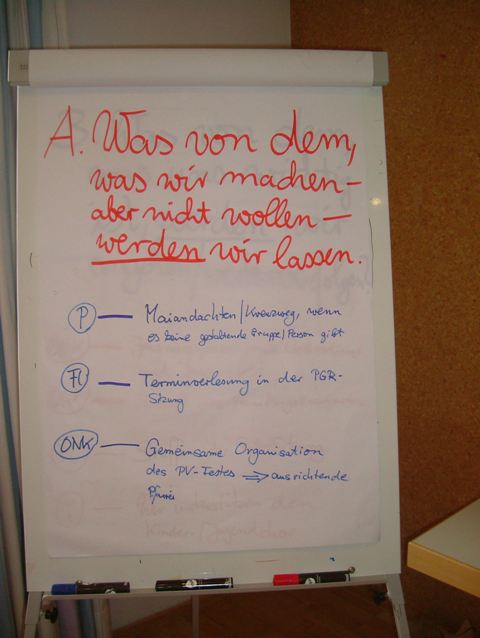 A. Was von dem,
was wir machen –
aber nicht wollen –
werden wir lassen.
P — Maiandachten/Kreuzweg, wenn
es keine gestaltende Gruppe/Person gibt
FI — Terminverlesung in der PGR-
Sitzung
ONK — Gemeinsame Organisation
des PV-Festes ⇒ ausrichtende
Pfarrei